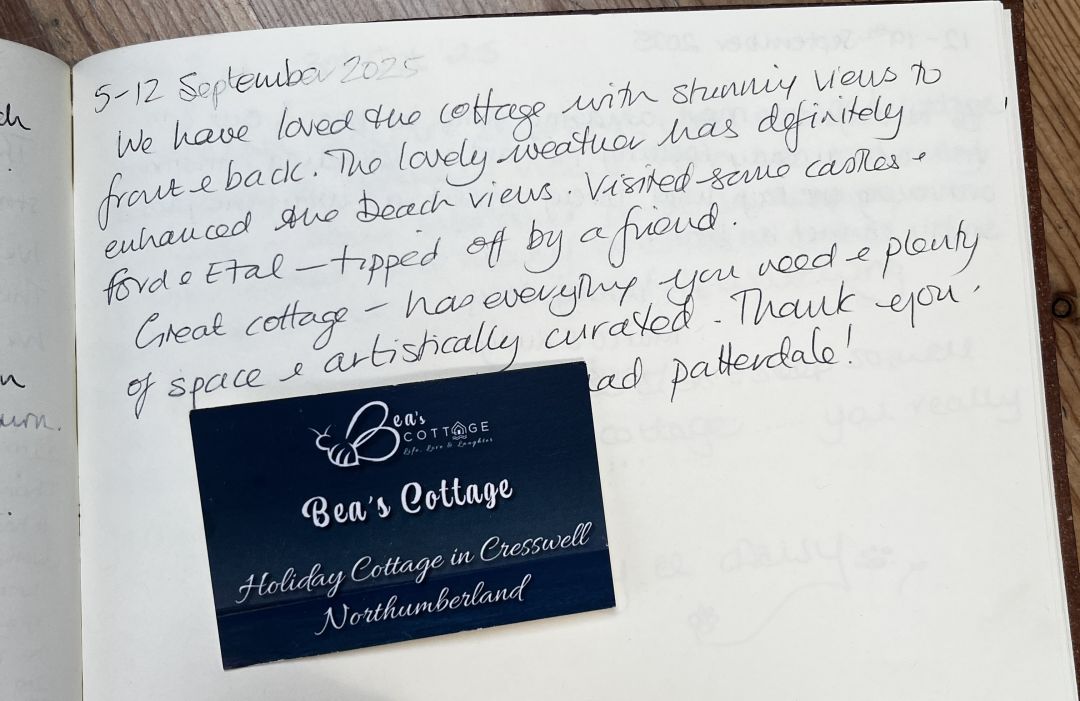 5-12 September 2025
We have loved the cottage with stunning views to
front & back. The lovely weather has definitely
enhanced the beach views. Visited some castles &
ford & Etal – tipped off by a friend.
Great cottage – has everything you need & plenty
of space & artistically curated. Thank you.
patterdale!
Bea's
COTTAGE
Life, Love & Laughter
Bea's Cottage
Holiday Cottage in Cresswell
Northumberland